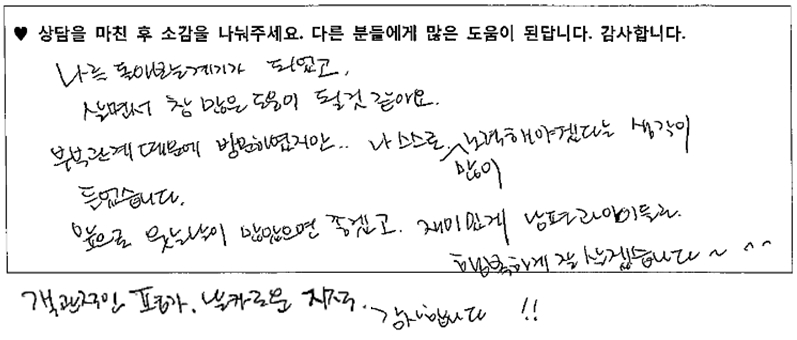 ♥ 상담을 마친 후 소감을 나눠주세요. 다른 분들에게 많은 도움이 된답니다. 감사합니다.
나를 돌아보는계기가 되었고,
살면서 참 많은 도움이 될것 같아요.
부부관계 때문에 방문하였지만.. 나 스스로 많이 노력해야겠다는 생각이
듣었습니다.
앞으로 웃는날이 많았으면 좋겠고. 재미있게 남편과아이들과
행복하게 잘 살겠습니다~ ^^
객관적인 평가, 날카로운 지적. 감사합니다 !!